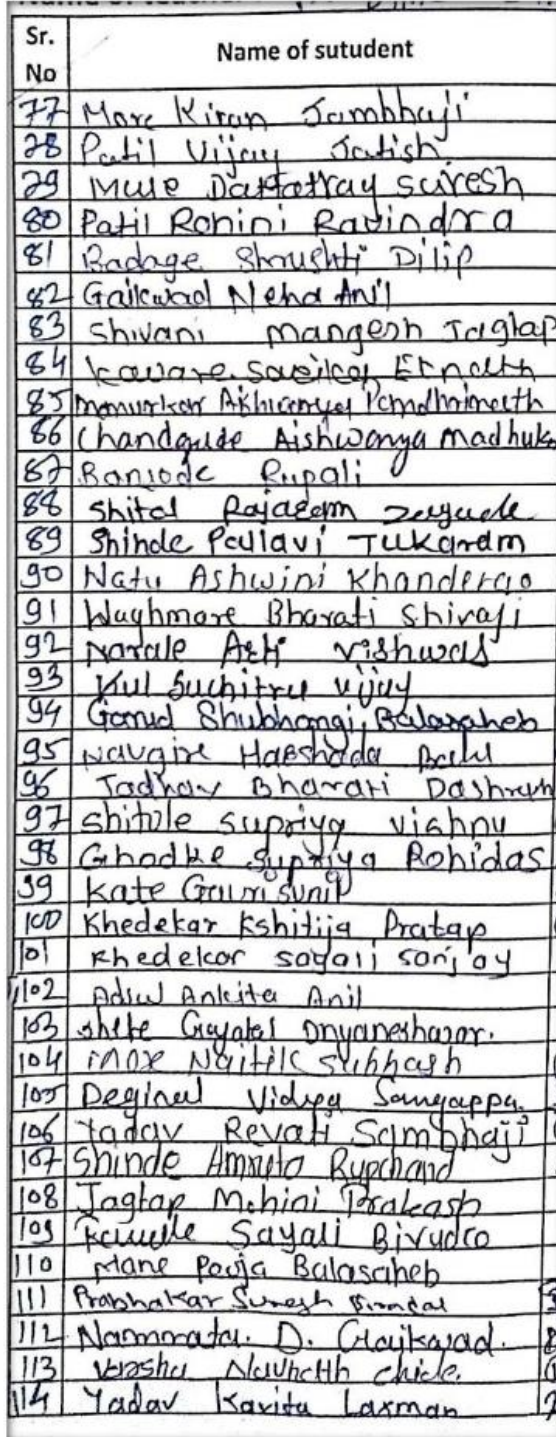 Sr. No Name of sutudent
77 More Kiran Sambhaji
78 Patil Vijay Satish
79 Mule Dattatray Suresh
80 Patil Rohini Ravindra
81 Badage Shrushti Dilip
82 Gaikwad Neha Anil
83 Shivani mangesh Jagtap
84 Kaware Eknath
85
86 Chandgude Aishwarya Madhuka
87 Bansode Rupali
88 Shital Rajaram
89 Shinde Pallavi Tukaram
90 Natu Ashwini Khanderao
91 Waghmare Bharati Shivaji
92 Narale Arti Vishwas
93 Kul Suchitra Vijay
94 Garud Shubhangi Balasaheb
95 Navgire Harshada Balu
96 Jadhav Bharati Dashrath
97 Shitole Supriya Vishnu
98 Ghodke Supriya Rohidas
99 Kate Gauri Sunil
100 Khedekar Kshitija Pratap
101 Khedekar Sayali Sanjay
102 Adsul Ankita Anil
103 Shete Gayatri Dnyaneshwar.
104 Naitik Subhash
105 Deginal Vidya Sangappa.
106 Yadav Revati Sambhaji
107 Shinde Amruta Rupchand
108 Jagtap Mohini Prakash
109 Sayali
110 Mane Pooja Balasaheb
111 Prabhakar Suresh
112 Nammrata. D. Gaikwad.
113 Varsha Navnath chide.
114 Yadav Kavita Laxman